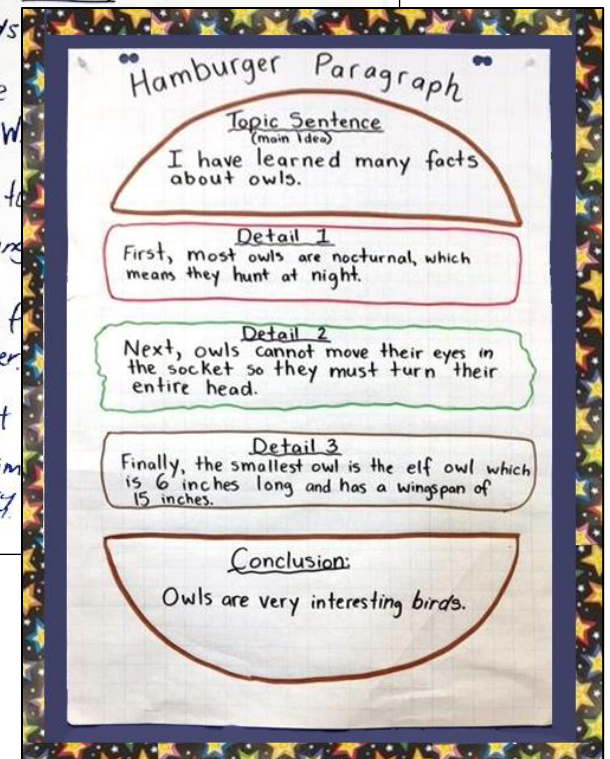 Hamburger Paragraph
Topic Sentence
(main Idea)
I have learned many facts
about owls.
Detail 1
First, most owls are nocturnal, which
means they hunt at night.
Detail 2
Next, owls cannot move their eyes in
the socket so they must turn their
entire head.
Detail 3
Finally, the smallest owl is the elf owl which
is 6 inches long and has a wingspan of
15 inches.
Conclusion:
Owls are very interesting birds.